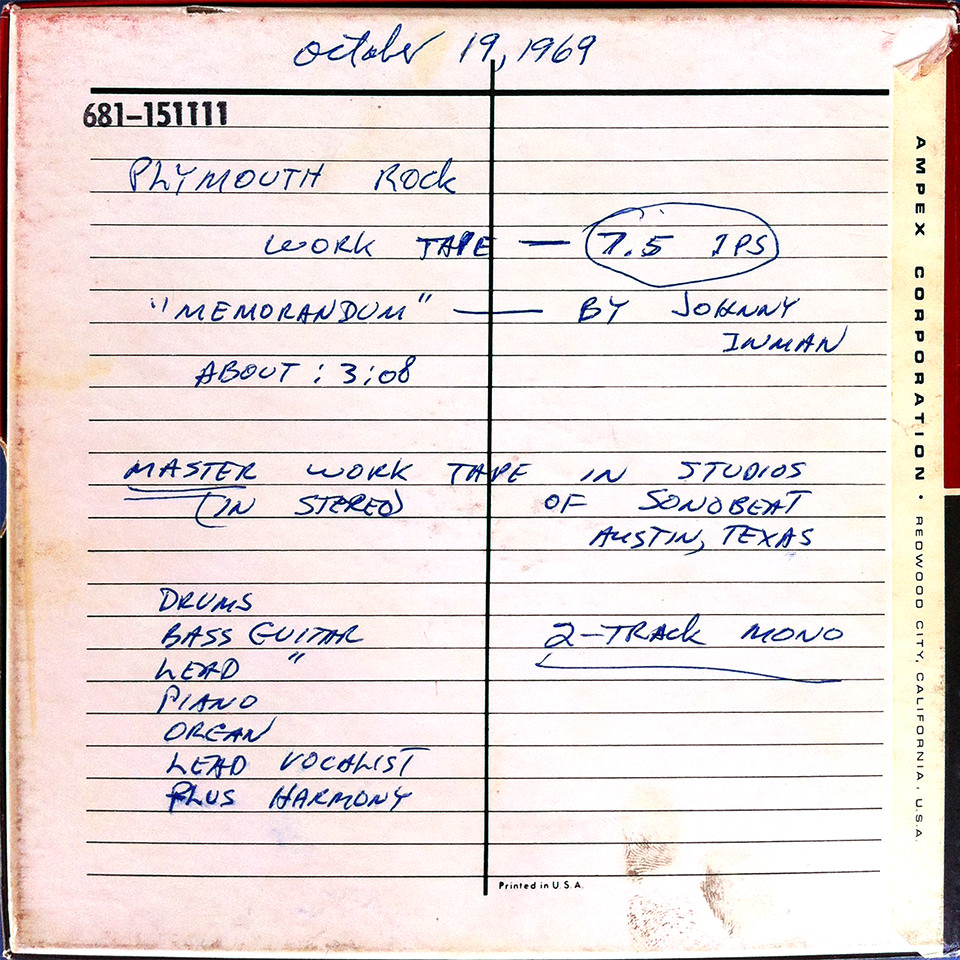 October 19, 1969
681-151111
PLYMOUTH ROCK
WORK TAPE — 7.5 IPS
"MEMORANDUM" — BY JOHNNY
INMAN
ABOUT : 3:08
MASTER WORK TAPE IN STUDIOS
(IN STEREO) OF SONOBEAT
AUSTIN, TEXAS
DRUMS
BASS GUITAR 2-TRACK MONO
LEAD "
PIANO
ORGAN
LEAD VOCALIST
PLUS HARMONY
Printed in U.S.A.
AMPEX CORPORATION • REDWOOD CITY, CALIFORNIA, U.S.A.